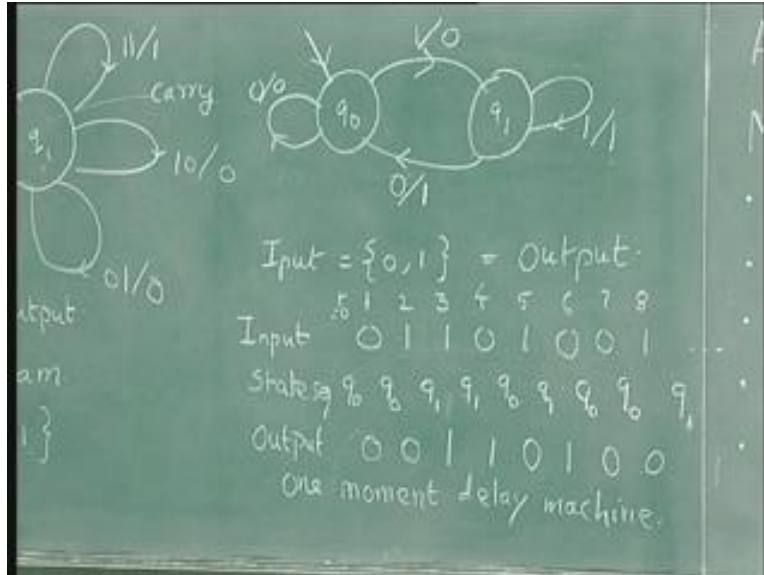 11/1
carry
q1
10/0
01/0
1/0
0/0
q0
q1
1/1
0/1
Iput = {0, 1} = Output.
t=0 1 2 3 4 5 6 7 8
Input 0 1 1 0 1 0 0 1 ...
State q0 q0 q1 q1 q0 q1 q0 q0 q1
Output 0 0 1 1 0 1 0 0
one moment delay machine.
tput
am
1}